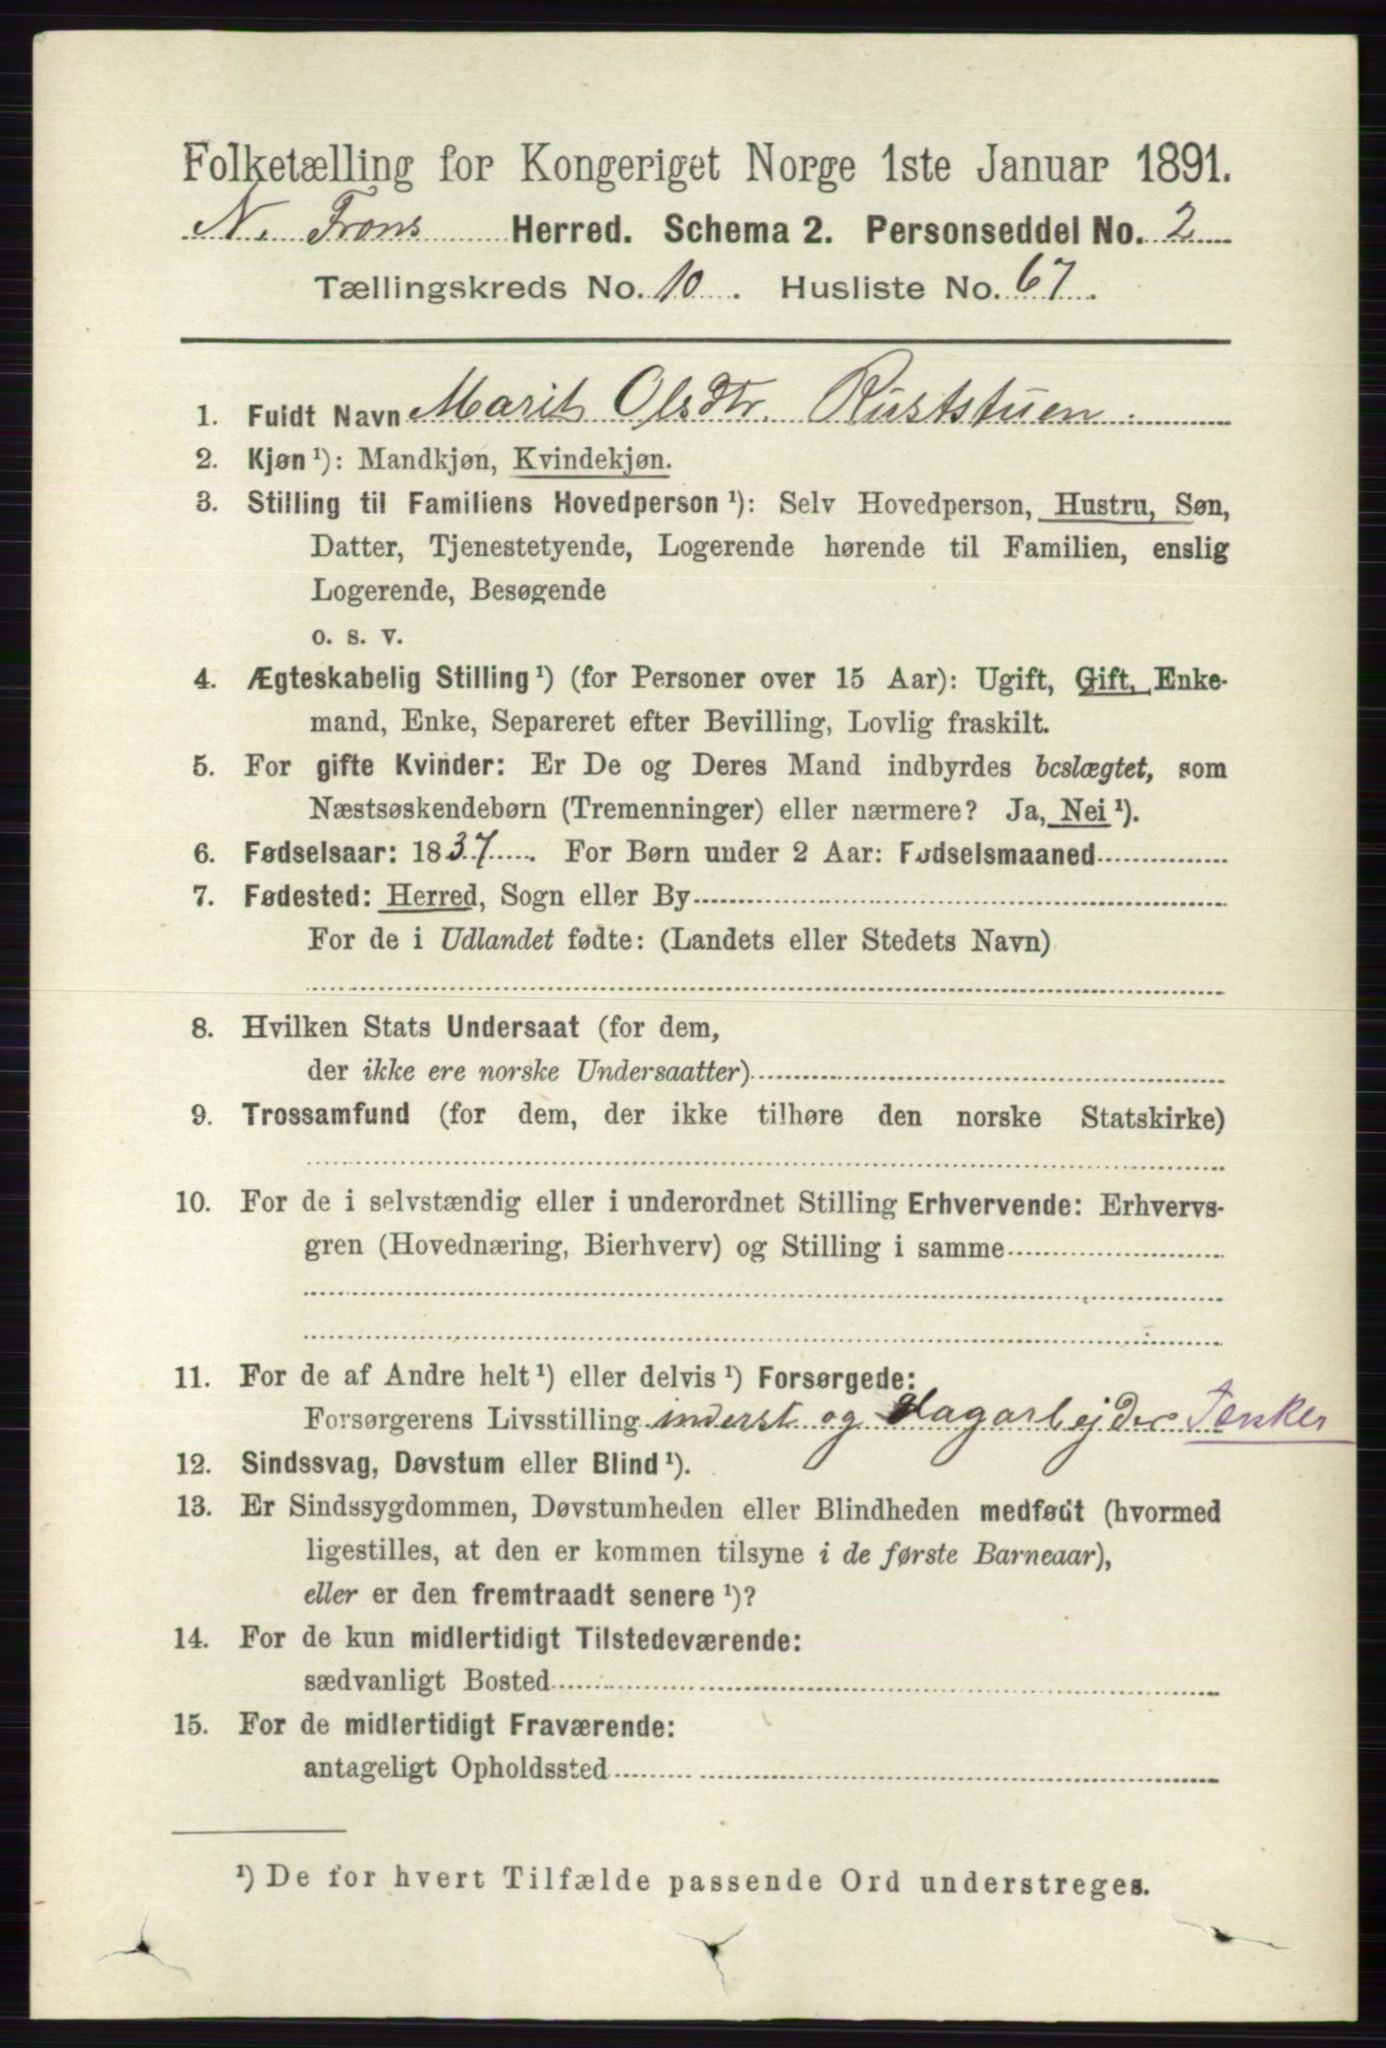 Folketælling for Kongeriget Norge 1ste Januar 1891.
N. Frons Herred. Schema 2. Personseddel No. 2
Tællingskreds No. 10. Husliste No. 67.
1. Fuldt Navn Marit Olsdtr. Ruststuen.
2. Kjøn ¹): Mandkjøn, Kvindekjøn.
3. Stilling til Familiens Hovedperson ¹): Selv Hovedperson, Hustru, Søn,
Datter, Tjenestetyende, Logerende hørende til Familien, enslig
Logerende, Besøgende
o. s. v.
4. Ægteskabelig Stilling ¹) (for Personer over 15 Aar): Ugift, Gift, Enke-
mand, Enke, Separeret efter Bevilling, Lovlig fraskilt.
5. For gifte Kvinder: Er De og Deres Mand indbyrdes beslægtet, som
Næstsøskendebørn (Tremenninger) eller nærmere? Ja, Nei ¹).
6. Fødselsaar: 1837. For Børn under 2 Aar: Fødselsmaaned
7. Fødested: Herred, Sogn eller By
For de i Udlandet fødte: (Landets eller Stedets Navn)
8. Hvilken Stats Undersaat (for dem,
der ikke ere norske Undersaatter)
9. Trossamfund (for dem, der ikke tilhøre den norske Statskirke)
10. For de i selvstændig eller i underordnet Stilling Erhvervende: Erhvervs-
gren (Hovednæring, Bierhverv) og Stilling i samme
11. For de af Andre helt ¹) eller delvis ¹) Forsørgede:
Forsørgerens Livsstilling inderst og dagarbejder
12. Sindssvag, Døvstum eller Blind ¹).
13. Er Sindssygdommen, Døvstumheden eller Blindheden medfødt (hvormed
ligestilles, at den er kommen tilsyne i de første Barneaar),
eller er den fremtraadt senere ¹)?
14. For de kun midlertidigt Tilstedeværende:
sædvanligt Bosted
15. For de midlertidigt Fraværende:
antageligt Opholdssted
¹) De for hvert Tilfælde passende Ord understreges.